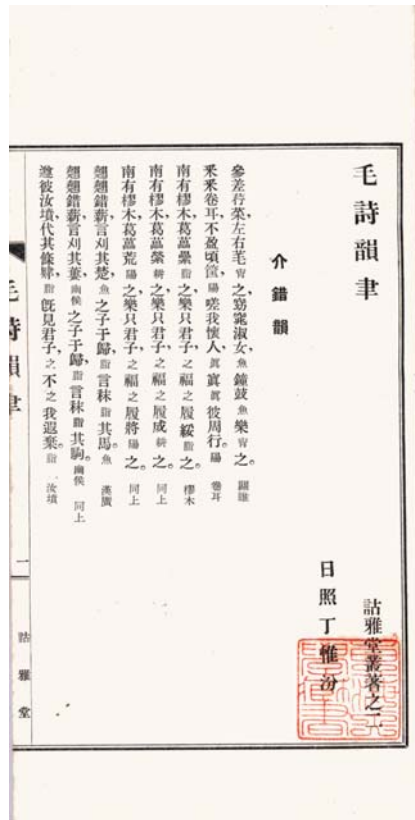 毛詩韻聿
詁雅堂叢著之二
日照丁惟汾
介錯韻
參差荇菜，左右芼宵之，窈窕淑女，魚鐘鼓魚樂宵之。關雎
采采卷耳，不盈頃筐，陽嗟我懷人，眞寘眞彼周行。陽卷耳
南有樛木，葛藟纍脂之，樂只君子，之福之履綏脂之。樛木
南有樛木，葛藟縈耕之，樂只君子，之福之履成耕之。同上
南有樛木葛藟荒陽之，樂只君子，之福之履將陽之。同上
翹翹錯薪，言刈其楚，魚之子于歸，脂言秣脂其馬。魚漢廣
翹翹錯薪，言刈其蔞，幽候之子于歸，脂言秣脂其駒。幽候同上
遵彼汝墳，伐其條肄，脂旣見君子，之不之我遐棄。脂汝墳
毛詩韻聿
一
詁雅堂